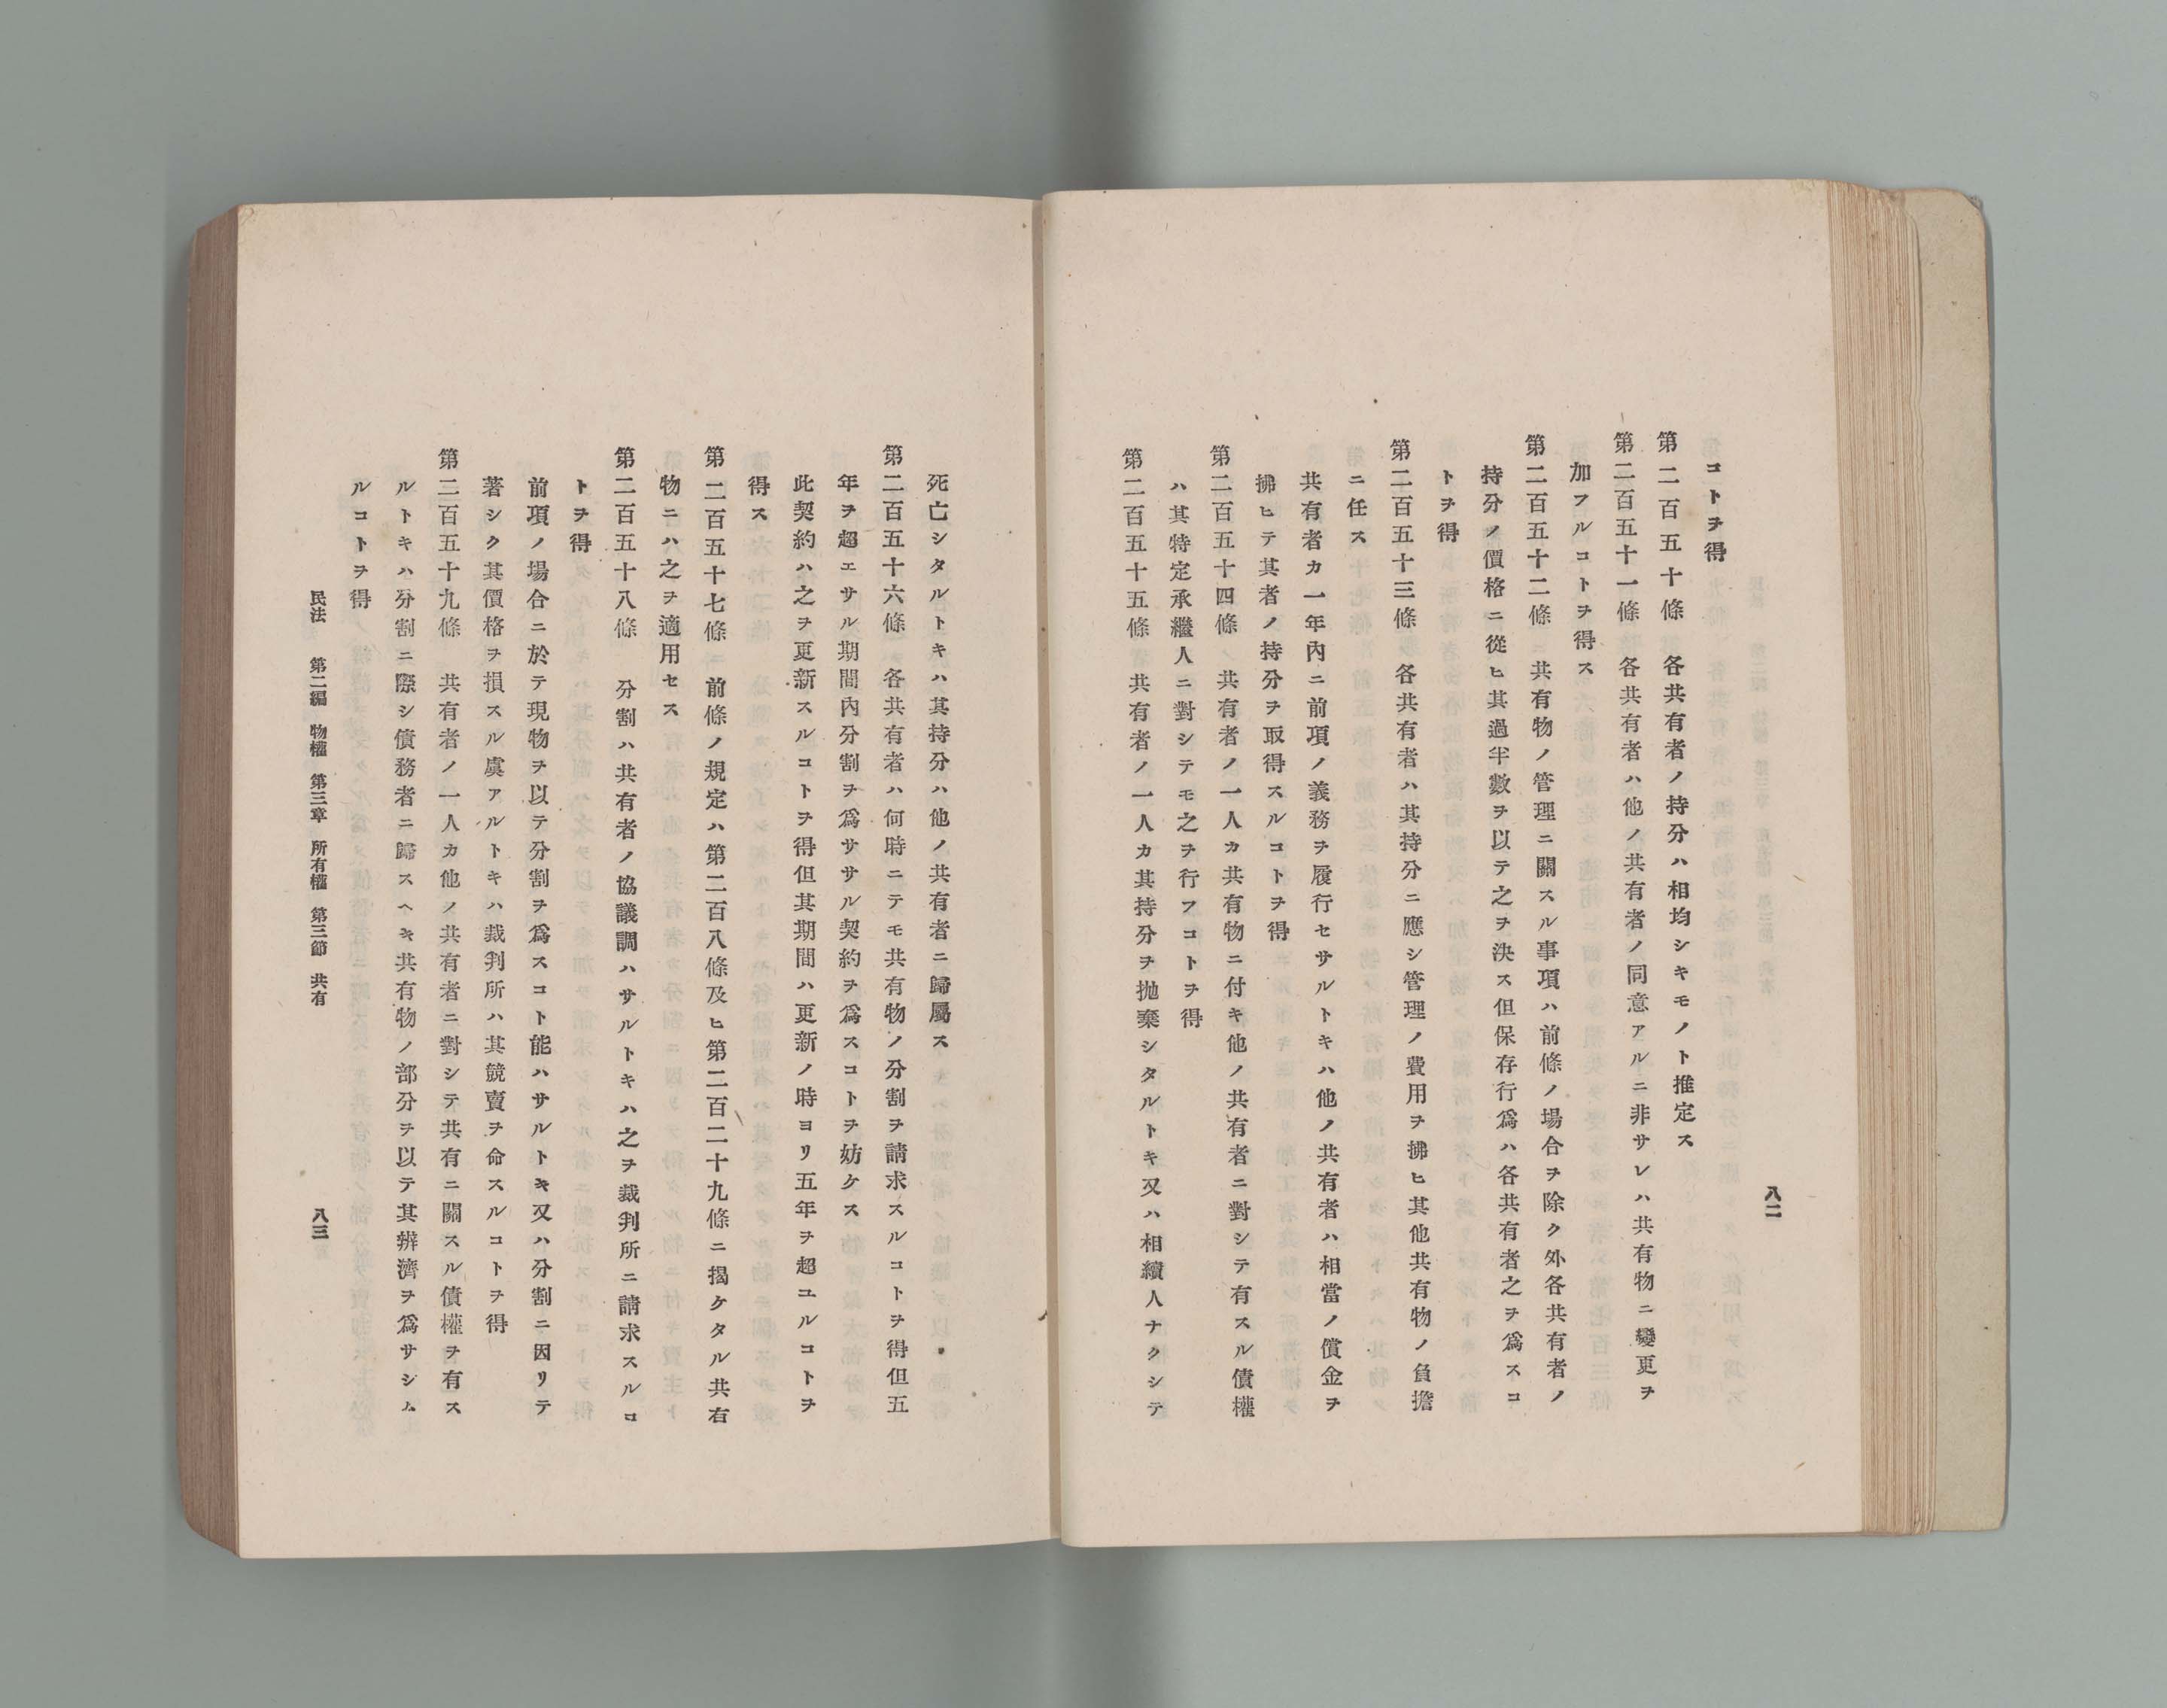 八二
コトヲ得
第二百五十條　各共有者ノ持分ハ相均シキモノト推定ス
第二百五十一條　各共有者ハ他ノ共有者ノ同意アルニ非サレハ共有物ニ變更ヲ
加フルコトヲ得ス
第二百五十二條　共有物ノ管理ニ關スル事項ハ前條ノ場合ヲ除ク外各共有者ノ
持分ノ價格ニ從ヒ其過半數ヲ以テ之ヲ決ス但保存行爲ハ各共有者之ヲ爲スコ
トヲ得
第二百五十三條　各共有者ハ其持分ニ應シ管理ノ費用ヲ拂ヒ其他共有物ノ負擔
ニ任ス
共有者カ一年內ニ前項ノ義務ヲ履行セサルトキハ他ノ共有者ハ相當ノ償金ヲ
拂ヒテ其者ノ持分ヲ取得スルコトヲ得
第二百五十四條　共有者ノ一人カ共有物ニ付キ他ノ共有者ニ對シテ有スル債權
ハ其特定承繼人ニ對シテモ之ヲ行フコトヲ得
第二百五十五條　共有者ノ一人カ其持分ヲ抛棄シタルトキ又ハ相續人ナクシテ
死亡シタルトキハ其持分ハ他ノ共有者ニ歸屬ス
第二百五十六條　各共有者ハ何時ニテモ共有物ノ分割ヲ請求スルコトヲ得但五
年ヲ超エサル期間內分割ヲ爲ササル契約ヲ爲スコトヲ妨ケス
此契約ハ之ヲ更新スルコトヲ得但其期間ハ更新ノ時ヨリ五年ヲ超ユルコトヲ
得ス
第二百五十七條　前條ノ規定ハ第二百八條及ヒ第二百二十九條ニ揭ケタル共有
物ニハ之ヲ適用セス
第二百五十八條　分割ハ共有者ノ協議調ハサルトキハ之ヲ裁判所ニ請求スルコ
トヲ得
前項ノ場合ニ於テ現物ヲ以テ分割ヲ爲スコト能ハサルトキ又ハ分割ニ因リテ
著シク其價格ヲ損スル虞アルトキハ裁判所ハ其競賣ヲ命スルコトヲ得
第二百五十九條　共有者ノ一人カ他ノ共有者ニ對シテ共有ニ關スル債權ヲ有ス
ルトキハ分割ニ際シ債務者ニ歸スヘキ共有物ノ部分ヲ以テ其辨濟ヲ爲サシム
ルコトヲ得
民法　第二編　物權　第三章　所有權　第三節　共有　八三